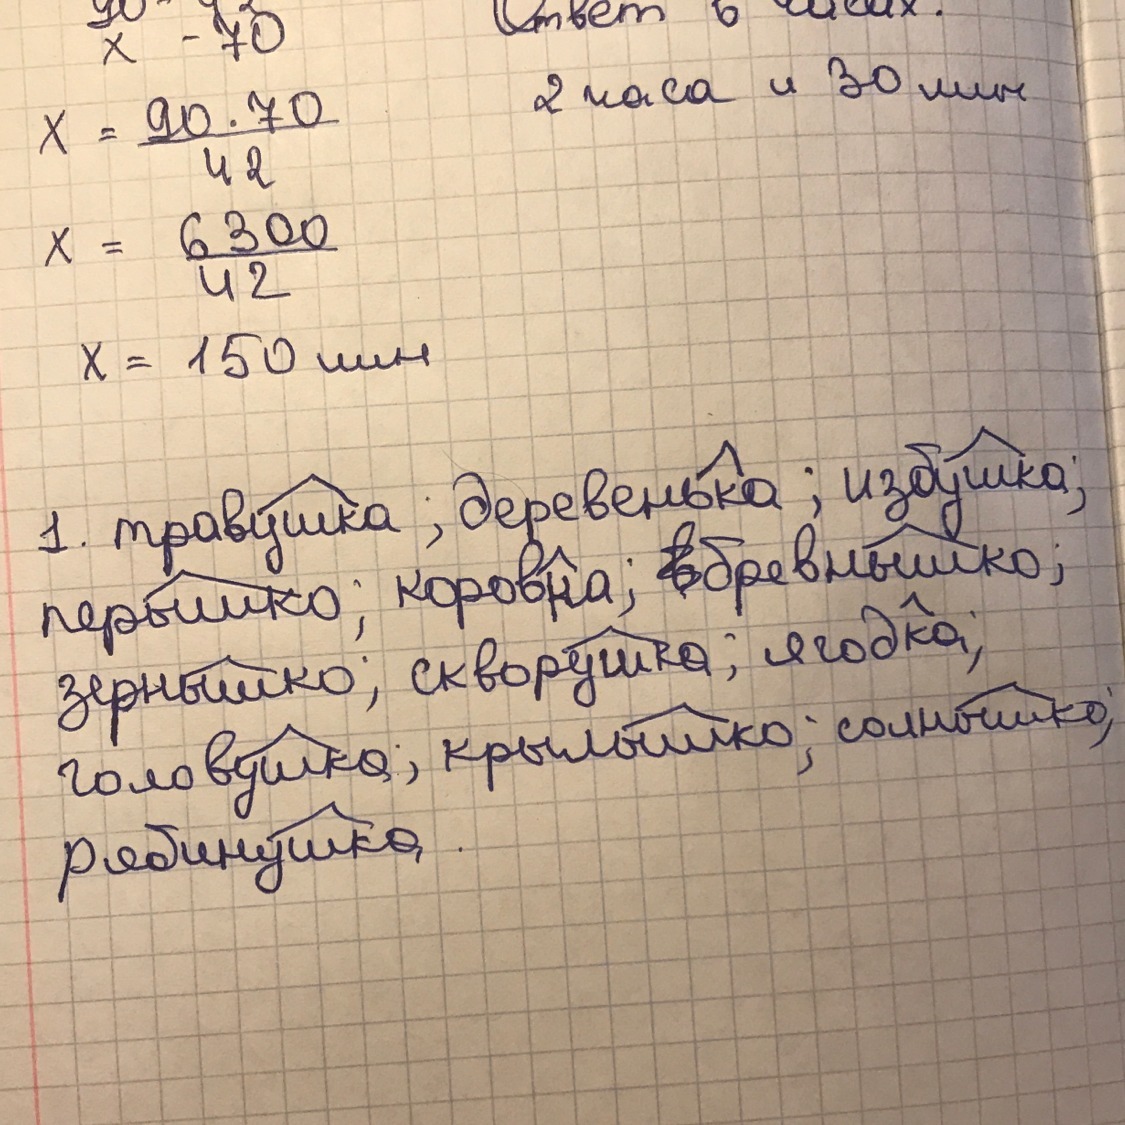 90 - 42
x - 70
Ответ в часах.
x = 90 · 70 / 42
2 часа и 30 мин
x = 6300 / 42
x = 150 мин
1. травушка; деревенька; избушка;
перышко; коровка; бревнышко;
зернышко; скворушка; ягодка;
головушка; крылышко; солнышко;
рябинушка.